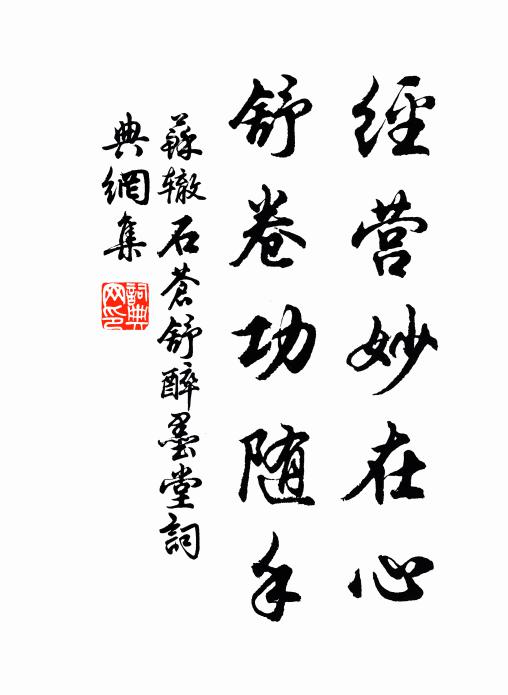 經营妙在心
舒卷功随手
蘇辙石蒼舒醉墨堂詞
典網集
詞典
网印